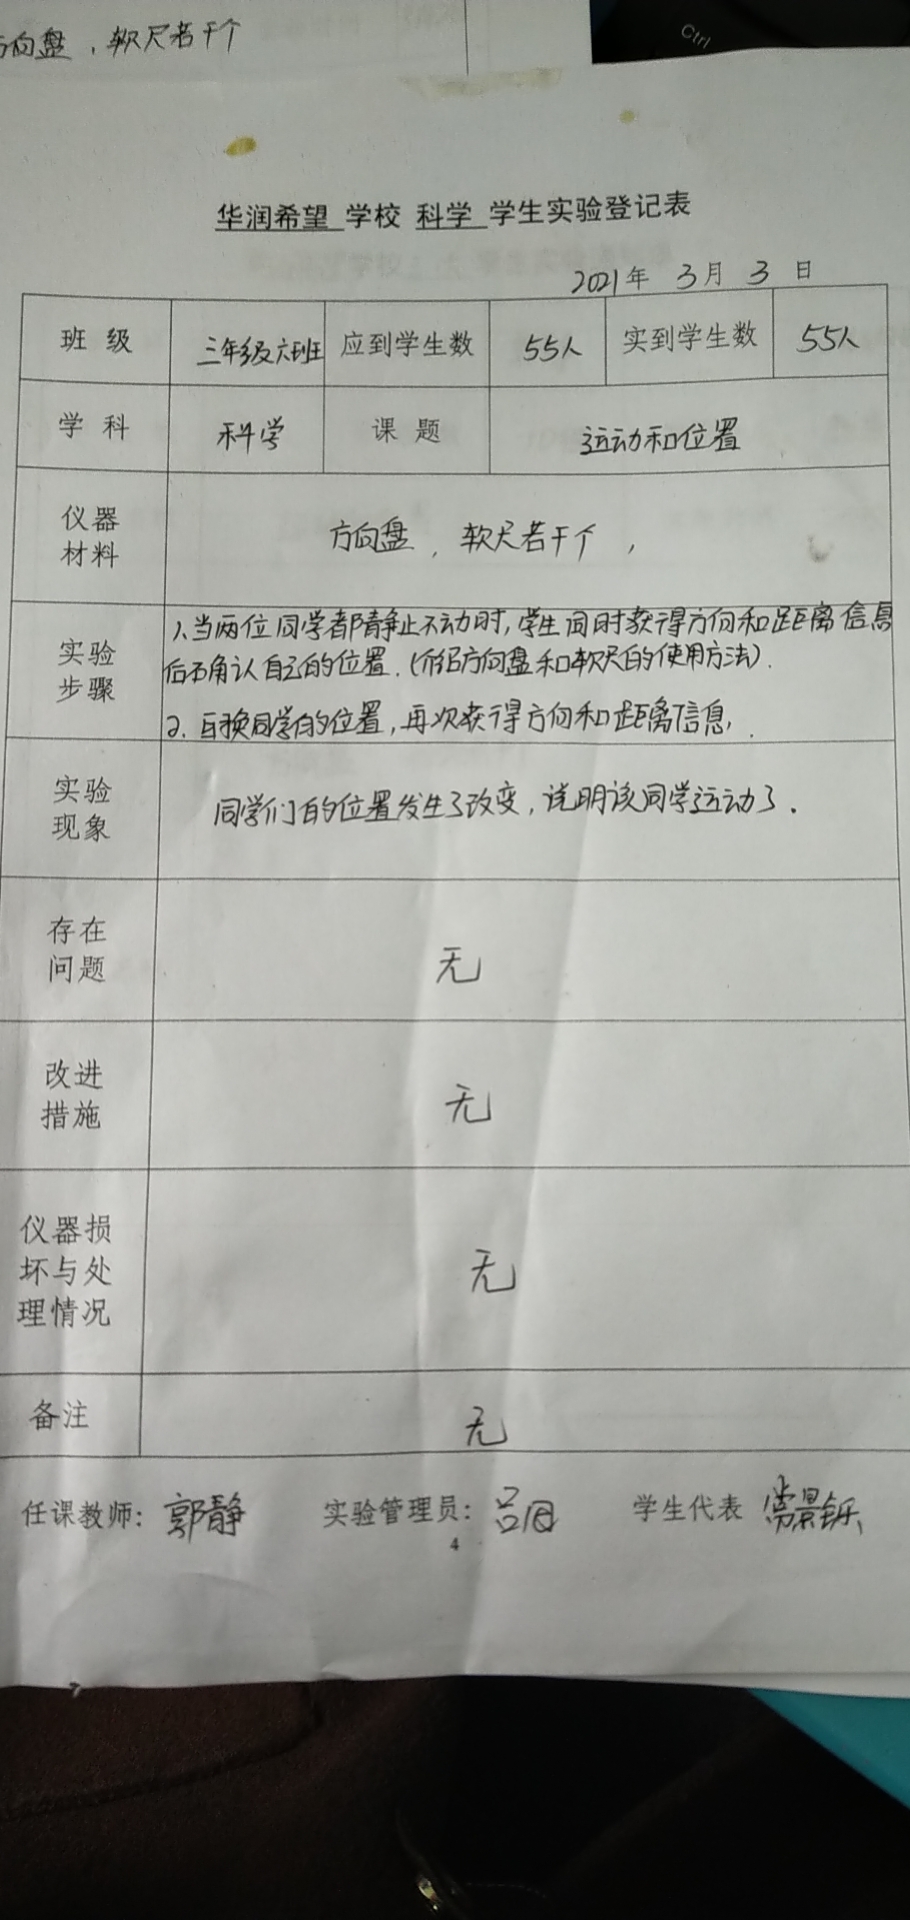 方向盘，软尺若干个
Ctrl
华润希望 学校 科学 学生实验登记表
2021年 3月 3日
班级 三年级六班 应到学生数 55人 实到学生数 55人
学科 科学 课题 运动和位置
仪器
材料
方向盘，软尺若干个，
实验
步骤
1、当两位同学都静止不动时，学生同时获得方向和距离信息
后再确认自己的位置.(介绍方向盘和软尺的使用方法).
2、互换同学的位置，再次获得方向和距离信息.
实验
现象
同学们的位置发生了改变，说明该同学运动了.
存在
问题
无
改进
措施
无
仪器损
坏与处
理情况
无
备注 无
任课教师：郭静 实验管理员：吕 学生代表 景铄
4